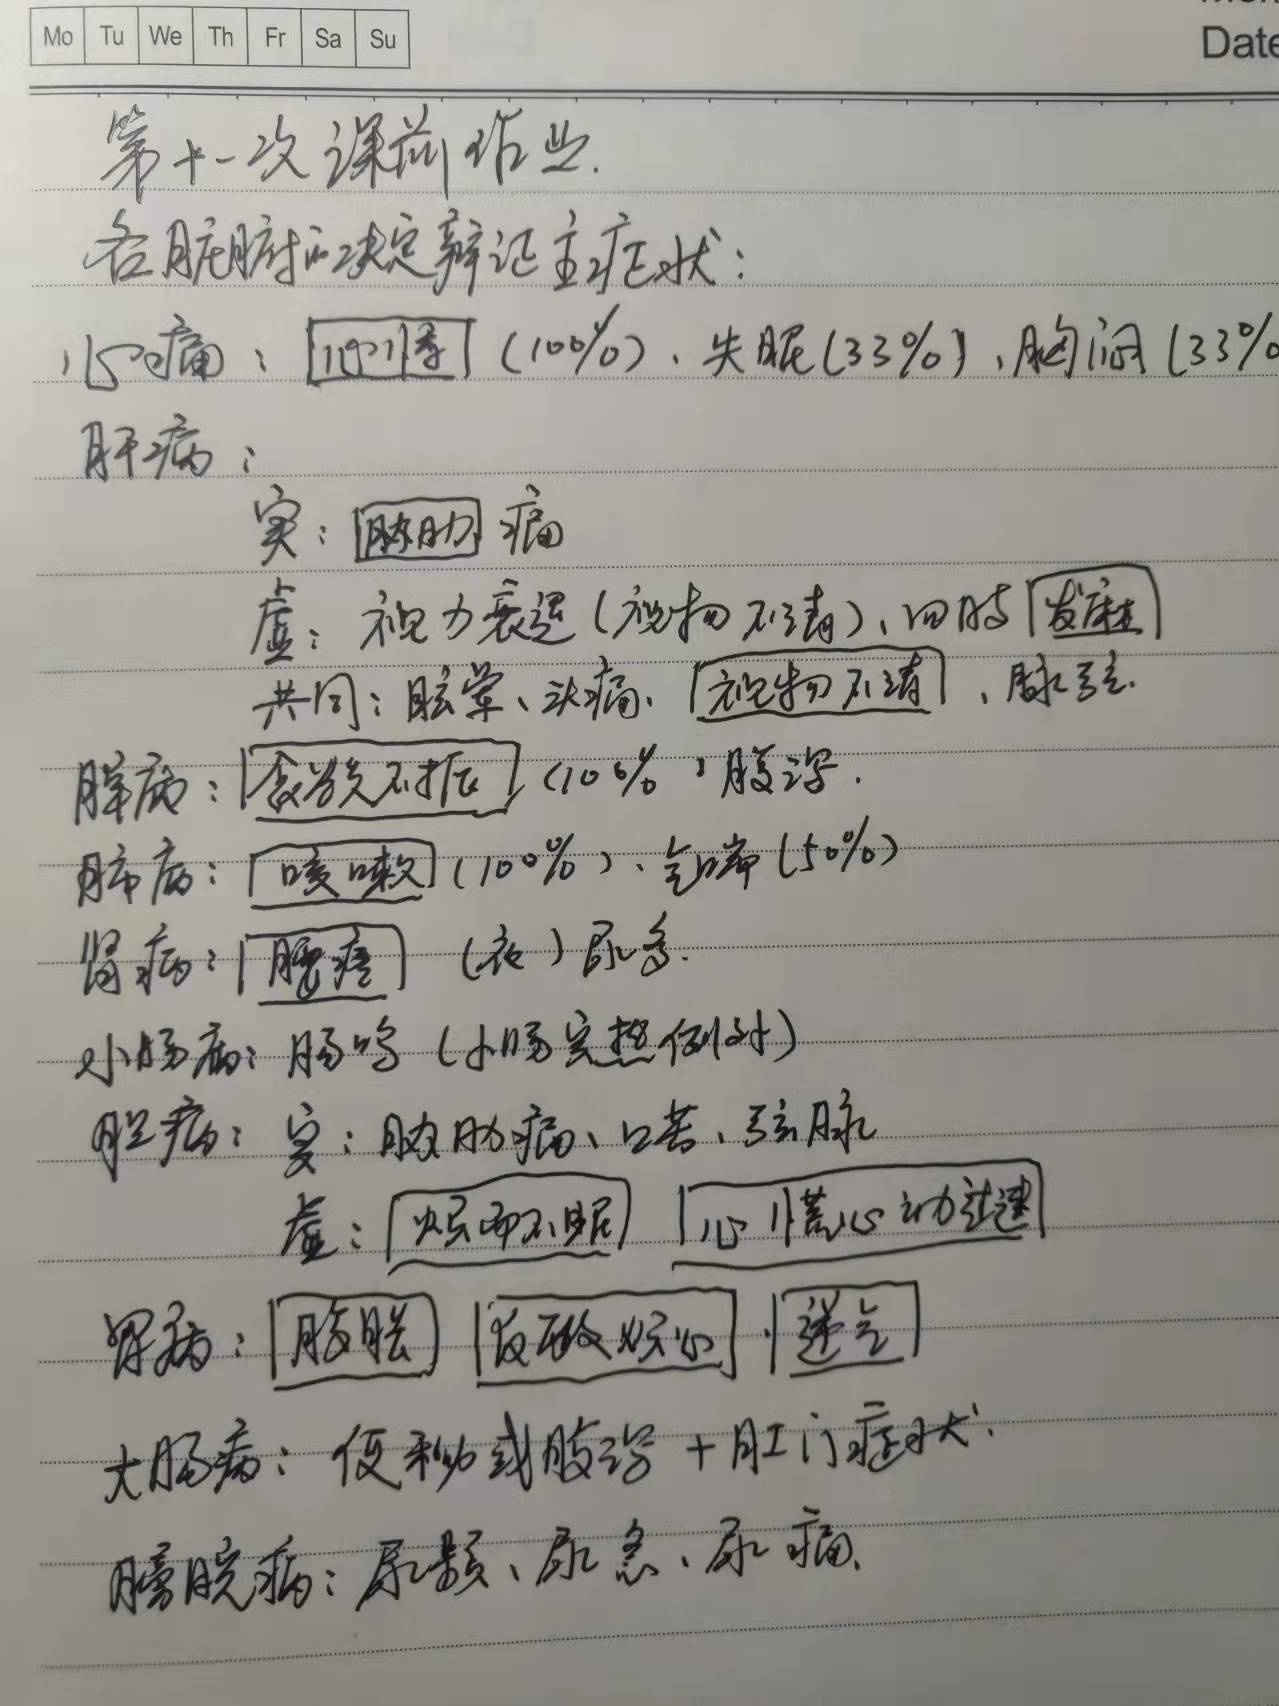 Mo Tu We Th Fr Sa Su
Date
第十一次课前作业.
各脏腑的决定辩证主症状:
心痛: 心悸 (100%)、失眠(33%)、胸闷(33%
肝病:
实: 胁肋 痛
虚: 视力衰退(视物不清)、四肢 发麻
共同: 眩晕、头痛、视物不清、脉弦.
脾病: 食欲不振 (100%, 腹泻.
肺病: 咳嗽 (100%)、气喘(50%)
肾病: 腰痛 (夜)尿多.
小肠病: 肠鸣 (小肠实热例外)
胆病: 实: 胁肋痛、口苦、弦脉
虚: 烦而不眠 心慌心动过速
胃病: 腹胀 反酸烧心、逆气
大肠病: 便秘或腹泻 + 肛门症状.
膀胱病: 尿频、尿急、尿痛.